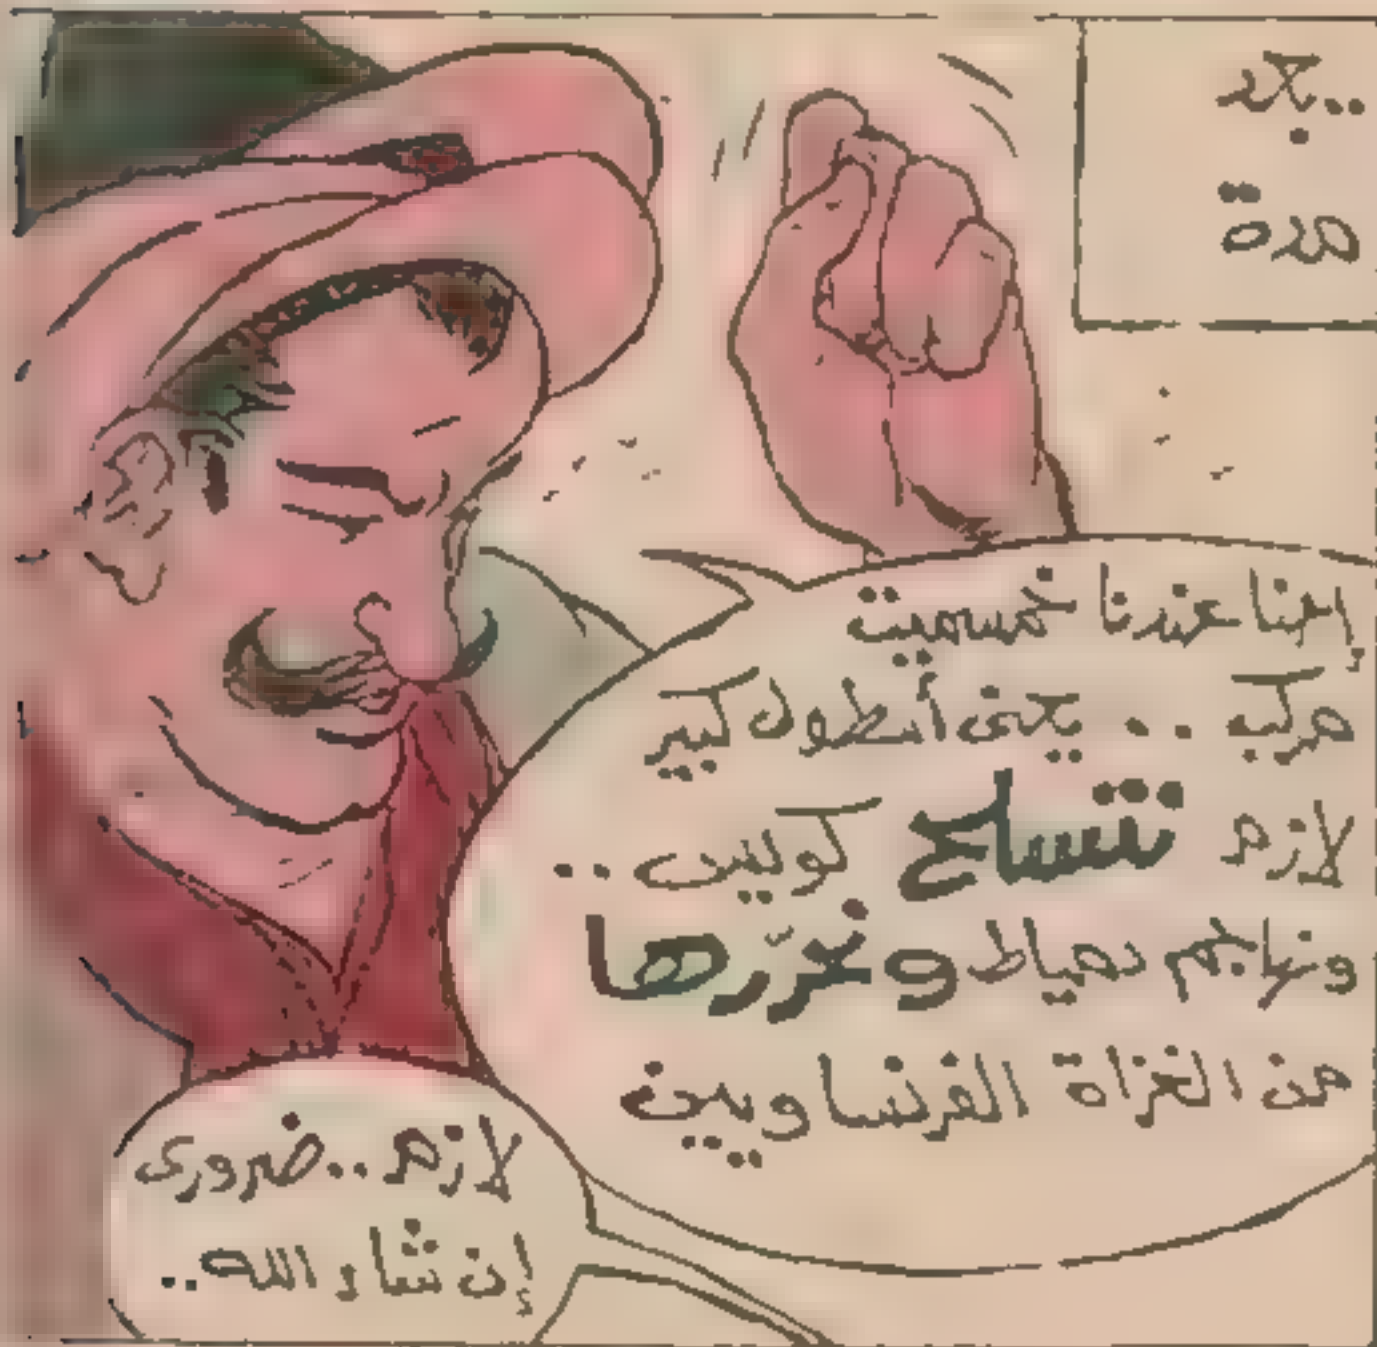 ..بعد
مدة
إحنا عندنا خمسميت
مركب .. يعنى أسطول كبير
لازم نتسلح كويس ..
ونهاجم دمياط ونحرّرها
من الغزاة الفرنساويين
لازم .. ضرورى
إن شاء الله ..